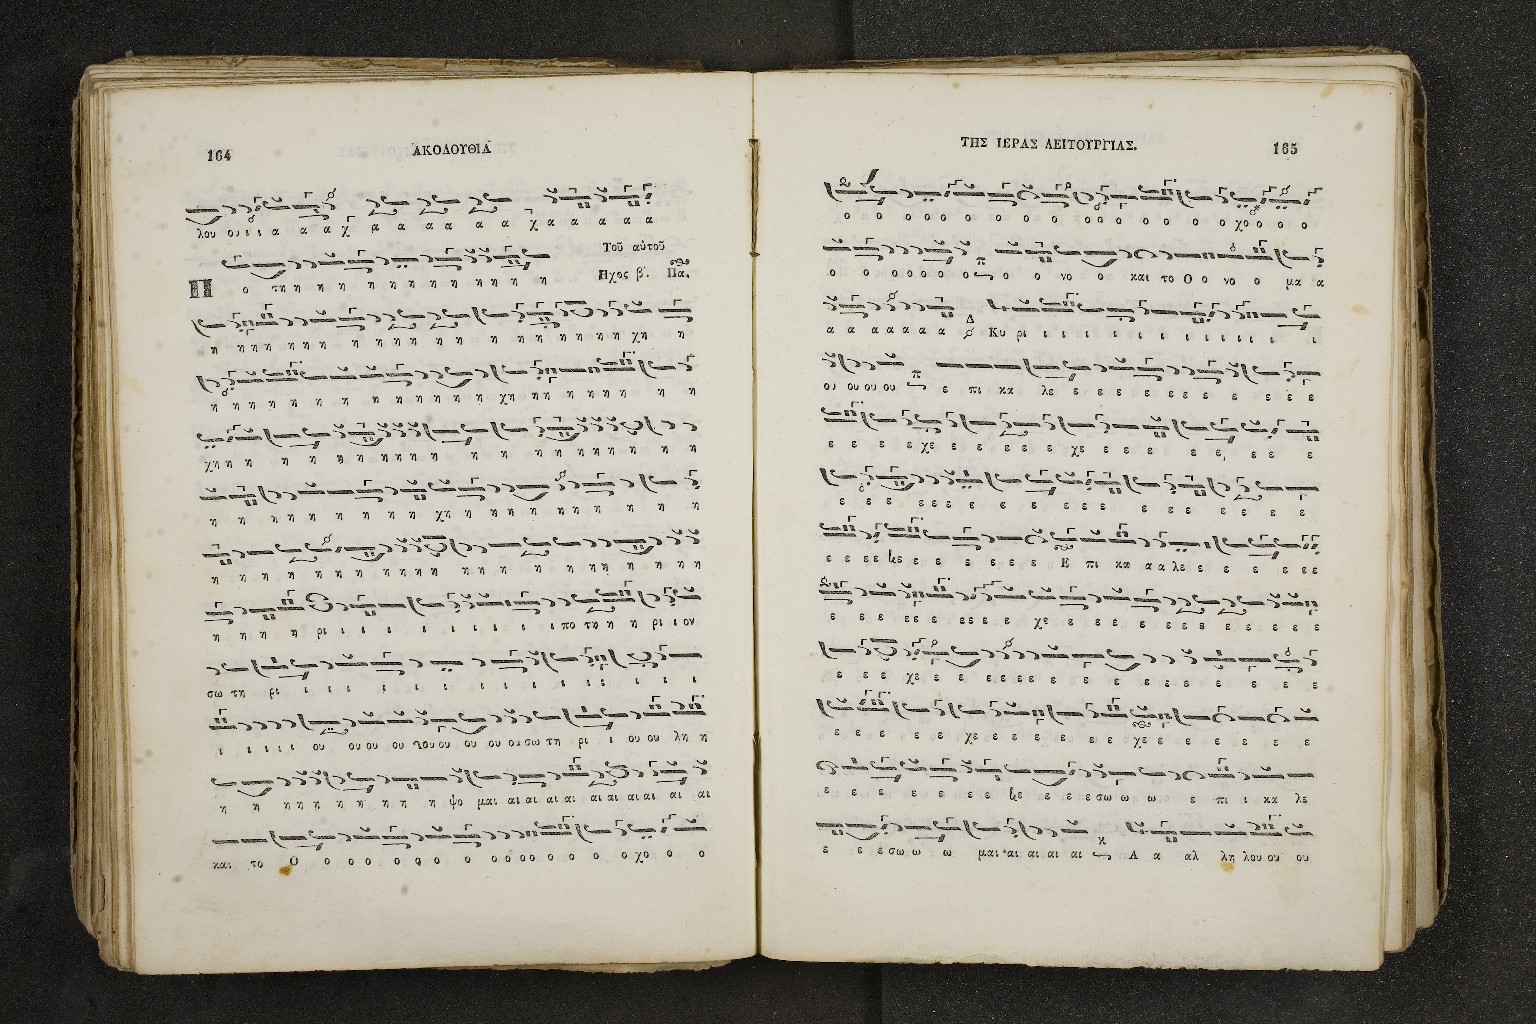 164 ΑΚΟΛΟΥΘΙΑ
λου ου ι ι α α α χ α α α α α α α χα α α α α
Τοῦ αὐτοῦ
Ηχος β'. Πα.
Π ο τη η η η η η η η η η η η
η η η η η η η η η η η η η η η η η η χη η
η η η η η η η η η η η η χη η η η η η η η η
χη η η η η η η η η η η η η η η η η η η η
η η η η η η η η χη η η η η η η η η η
η η η η η η η η η η η η η η η η η η η η η
η η η η ρι ι ι ι ι ι ι ι ι ι πο τη η η ρι ι ον
σω τη ρι ι ι ι ι ι ι ι ι ι ι ι ι ι
ι ι ι ι ι ου ου ου ου χου ου ου ου ου σω τη ρι ι ου ου λη η
η η η η η η η η η η ψο μαι αι αι αι αι αι αι αι αι αι αι
και το Ο ο ο ο ο ο ο ο ο ο ο ο ο ο ο ο χο ο ο
ΤΗΣ ΙΕΡΑΣ ΛΕΙΤΟΥΡΓΙΑΣ. 165
ο ο ο ο ο ο ο ο ο ο ο ο ο ο ο ο ο χο ο ο ο
ο ο ο ο ο ο ο ο ο νο ο και το Ο ο νο ο μα α
α α α α α α α Κυ ρι ι ι ι ι ι ι ι ι ι ι ι ι
ου ου ου ου ε πι κα λε ε ε ε ε ε ε ε ε ε ε ε ε
ε ε ε ε χε ε ε ε ε ε χε ε ε ε ε ε, ε ε ε
ε ε ε ε ε ε ε ε ε ε ε ε ε ε ε ε ε ε ε
ε ε ε ε κε ε ε ε ε ε ε ε Ε πι κα α α λε ε ε ε ε ε ε
ε ε ε ε ε ε ε ε ε ε χε ε ε ε ε ε ε ε ε ε ε ε ε
ε ε ε χε ε ε ε ε ε ε ε ε ε ε ε ε ε ε ε ε
ε ε ε ε ε χε ε ε ε ε ε ε χε ε ε ε ε ε ε
ε ε ε ε ε ε ε κε ε ε ε σω ω ω ε πι ι κα λε
ε ε ε σω ω ω μαι αι αι αι αι Α α αλ λη λου ου ου